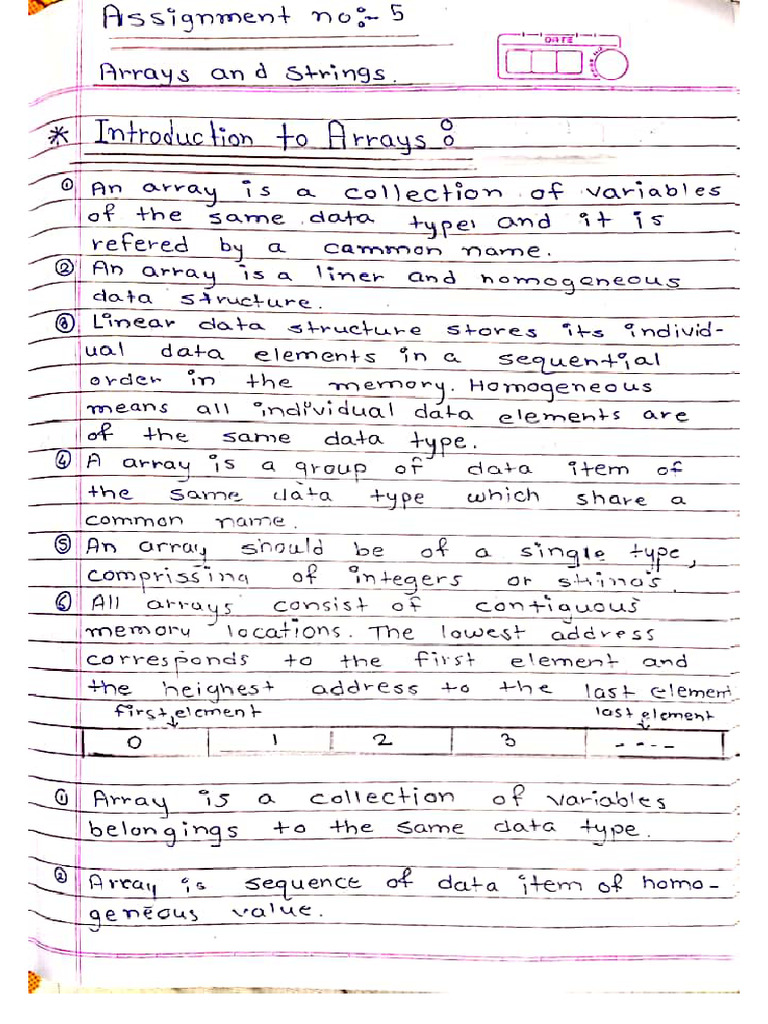 Assignment no:- 5
DATE
Arrays and strings.
* Introduction to Arrays :
① An array is a collection of variables
of the same data type, and it is
refered by a cammon name.
② An array is a liner and homogeneous
data structure.
③ Linear data structure stores its individ-
ual data elements in a sequential
order in the memory. Homogeneous
means all individual data elements are
of the same data type.
④ A array is a group of data item of
the same data type which share a
common name.
⑤ An array should be of a single type,
comprissing of integers or
⑥ All arrays consist of contiguous
memory locations. The lowest address
corresponds to the first element and
the heighest address to the last element
first element last element
0 1 2 3 ----
① Array is a collection of variables
belongings to the same data type.
② Array is sequence of data item of homo-
geneous value.